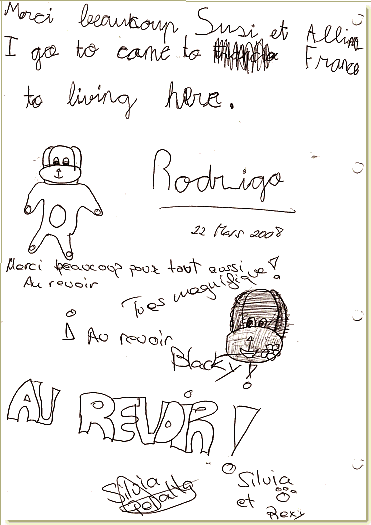 Merci beaucoup Susi et Allian
I go to came to France
to living here.
Rodrigo
22 Mars 2008
Merci beaucoup pour tout aussi
Au revoir
Tu es magnifique!
¡ Au revoir
Blacky
AU REVOIR!
Silvia
Silvia
et
Rexy